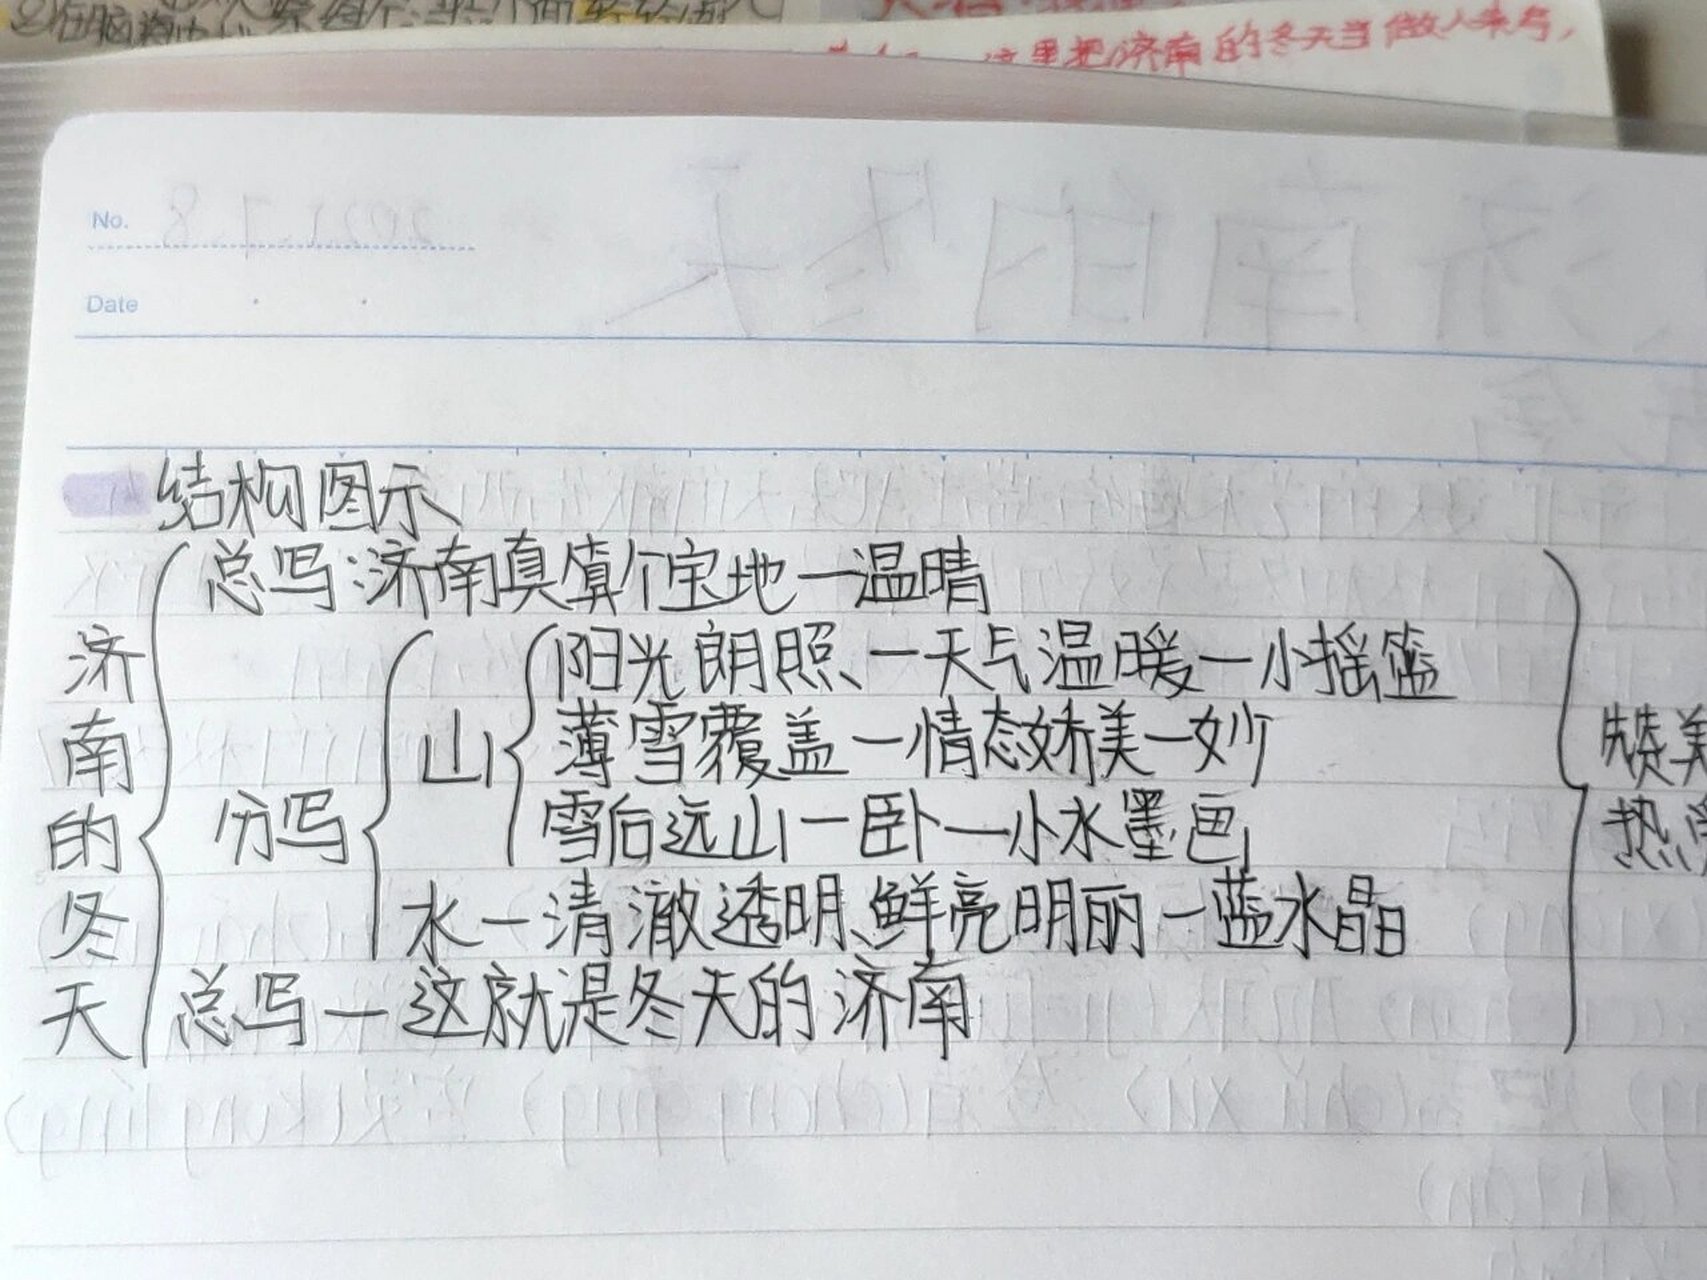 这里把济南的冬天当做人来写，
No.
Date
结构图示
济南的冬天
总写：济南真算个宝地一温晴
分写
山
阳光朗照、一天气温暖一小摇篮
薄雪覆盖一情态娇美一妙
雪后远山一卧一小水墨画
水一清澈透明、鲜亮明丽一蓝水晶
总写一这就是冬天的济南
赞美
热